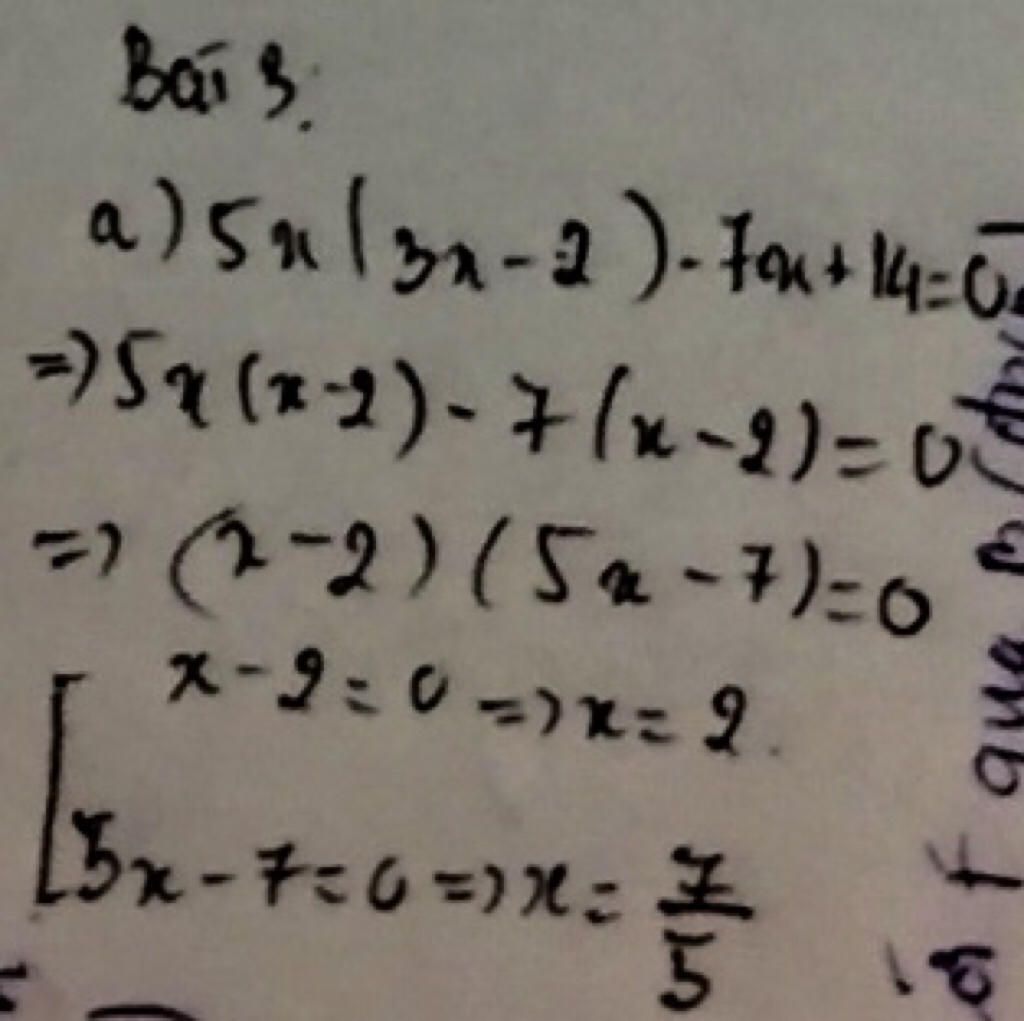 Bài 3.
a) 5x(3x-2)-7x+14=0
=> 5x(x-2)-7(x-2)=0
=> (x-2)(5x-7)=0
x-2=0 => x=2.
5x-7=0 => x=7/5
qua